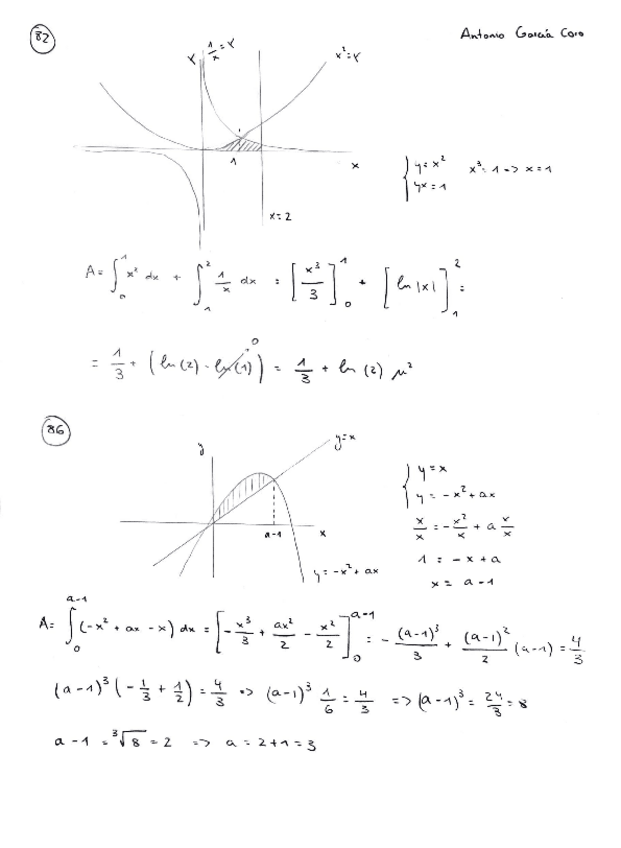 82
Antonio García Coro
y 1/x = y x² = y
1 x
x = 2
{ y = x²
yx = 1
x³ = 1 => x = 1
A = ∫₀¹ x² dx + ∫₁² 1/x dx = [x³/3]₀¹ + [ln |x|]₁² =
= 1/3 + (ln (2) - ln (1)) = 1/3 + ln (2) μ²
0
86
y y = x
a-1 x
y = -x² + ax
{ y = x
y = -x² + ax
x/x = -x²/x + a x/x
1 = -x + a
x = a - 1
A = ∫₀ᵃ⁻¹ (-x² + ax - x) dx = [-x³/3 + ax²/2 - x²/2]₀ᵃ⁻¹ = -(a-1)³/3 + (a-1)²/2 (a-1) = 4/3
(a-1)³ (-1/3 + 1/2) = 4/3 => (a-1)³ 1/6 = 4/3 => (a-1)³ = 24/3 = 8
a - 1 = ³√8 = 2 => a = 2 + 1 = 3